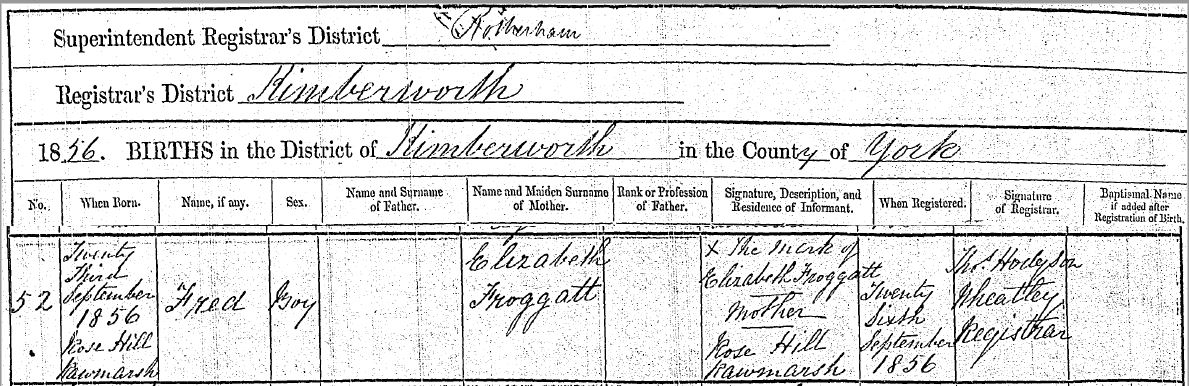 Superintendent Registrar's District Rotherham
Registrar's District Kimberworth
1856. BIRTHS in the District of Kimberworth in the County of York
No.
When Born.
Name, if any.
Sex.
Name and Surname
of Father.
Name and Maiden Surname
of Mother.
Rank or Profession
of Father.
Signature, Description, and
Residence of Informant.
When Registered.
Signature
of Registrar.
Baptismal Name
if added after
Registration of Birth.
52
Twenty
Third
September
1856
Rose Hill
Rawmarsh
Fred
Boy
Elizabeth
Froggatt
X The Mark of
Elizabeth Froggatt
Mother
Rose Hill
Rawmarsh
Twenty
Sixth
September
1856
Thos. Hodgson
Wheatley
Registrar